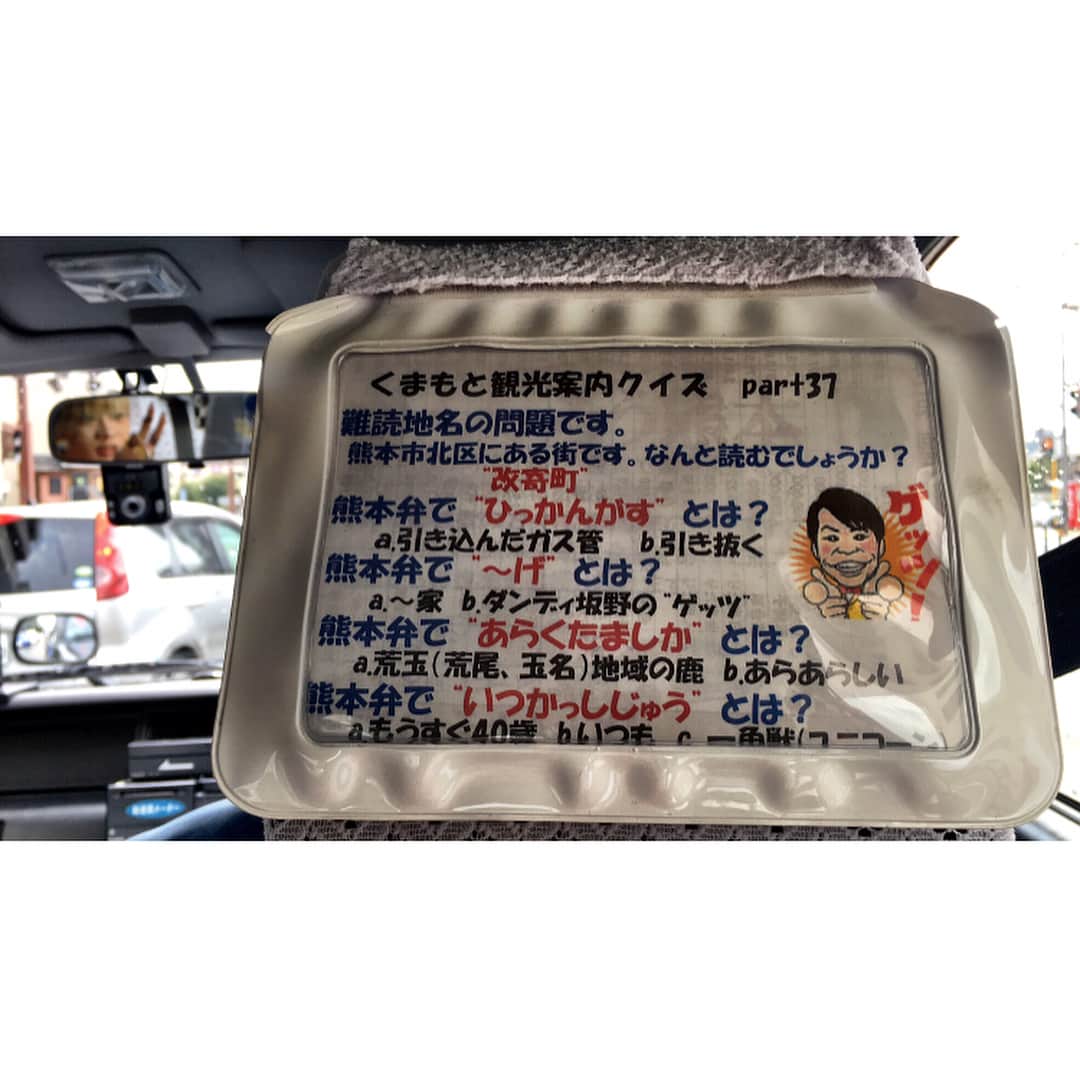 くまもと観光案内クイズ part37
難読地名の問題です。
熊本市北区にある街です。なんと読むでしょうか?
"改寄町"
熊本弁で "ひっかんがす" とは?
a.引き込んだガス管 b.引き抜く
熊本弁で "～げ" とは?
a.～家 b.ダンディ坂野の"ゲッツ"
熊本弁で "あらくたましか" とは?
a.荒玉(荒尾、玉名)地域の鹿 b.あらあらしい
熊本弁で "いつかっしじゅう" とは?
a.もうすぐ40歳 b.いつも c.一角獣(ユニコー
ゲッツ!